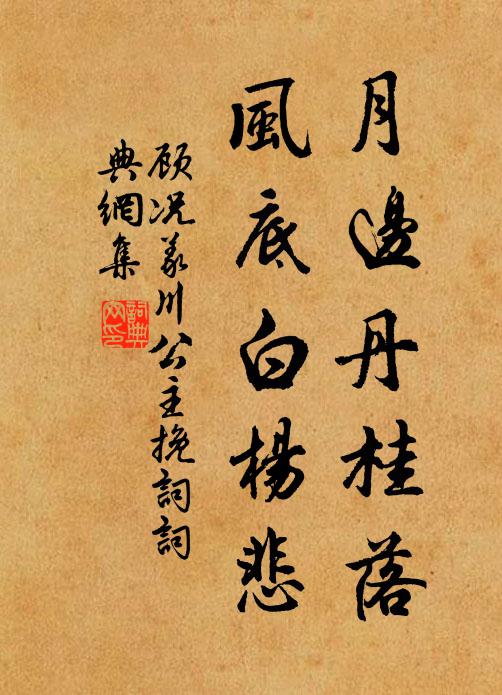 月邊丹桂落
風底白楊悲
顾况義川公主挽詞詞
典網集
詞典網印